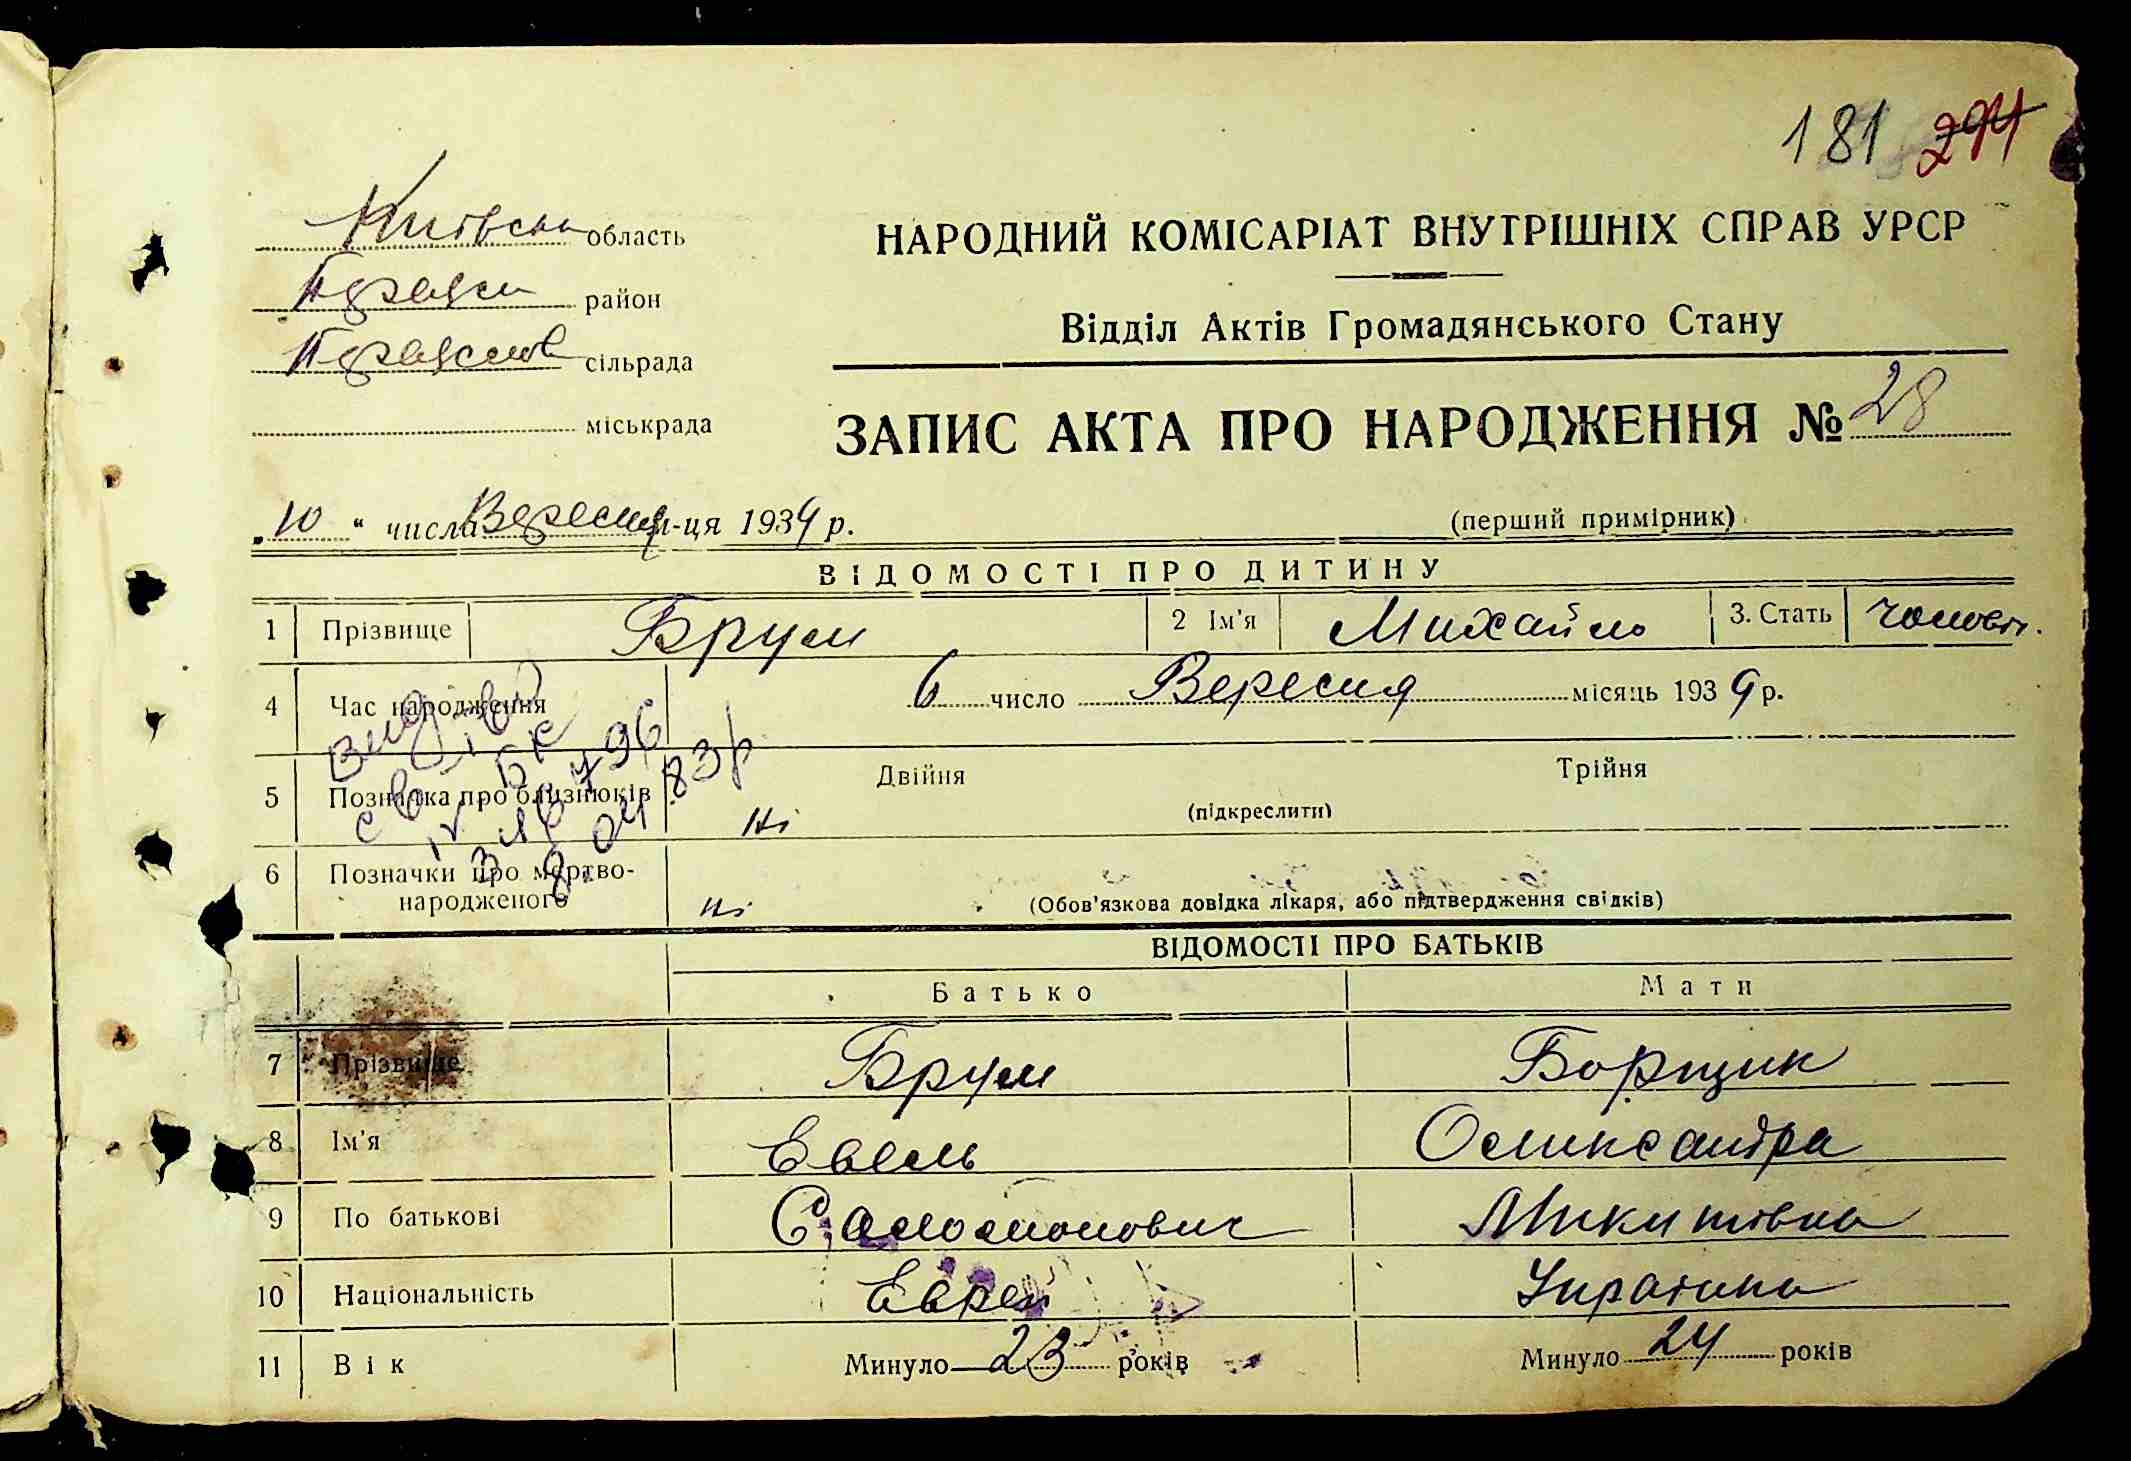 181 294
Київська область
район
сільрада
міськрада
НАРОДНИЙ КОМІСАРІАТ ВНУТРІШНІХ СПРАВ УРСР
Відділ Актів Громадянського Стану
ЗАПИС АКТА ПРО НАРОДЖЕННЯ № 28
„10“ числа Вересня м-ця 1939 р.
(перший примірник)
ВІДОМОСТІ ПРО ДИТИНУ
1 Прізвище Брум 2 Ім'я Михайло 3. Стать чоловіч.
4 Час народження 6 число Вересня місяць 1939 р.
5 Позначка про близнюків Двійня Трійня
(підкреслити)
Ні
6 Позначки про мертво-
народженого Ні (Обов'язкова довідка лікаря, або підтвердження свідків)
ВІДОМОСТІ ПРО БАТЬКІВ
Батько Мати
7 Прізвище Брум Борщик
8 Ім'я Евель Олександра
9 По батькові Соломонович Микитівна
10 Національність Еврей Українка
11 Вік Минуло 23 років Минуло 24 років